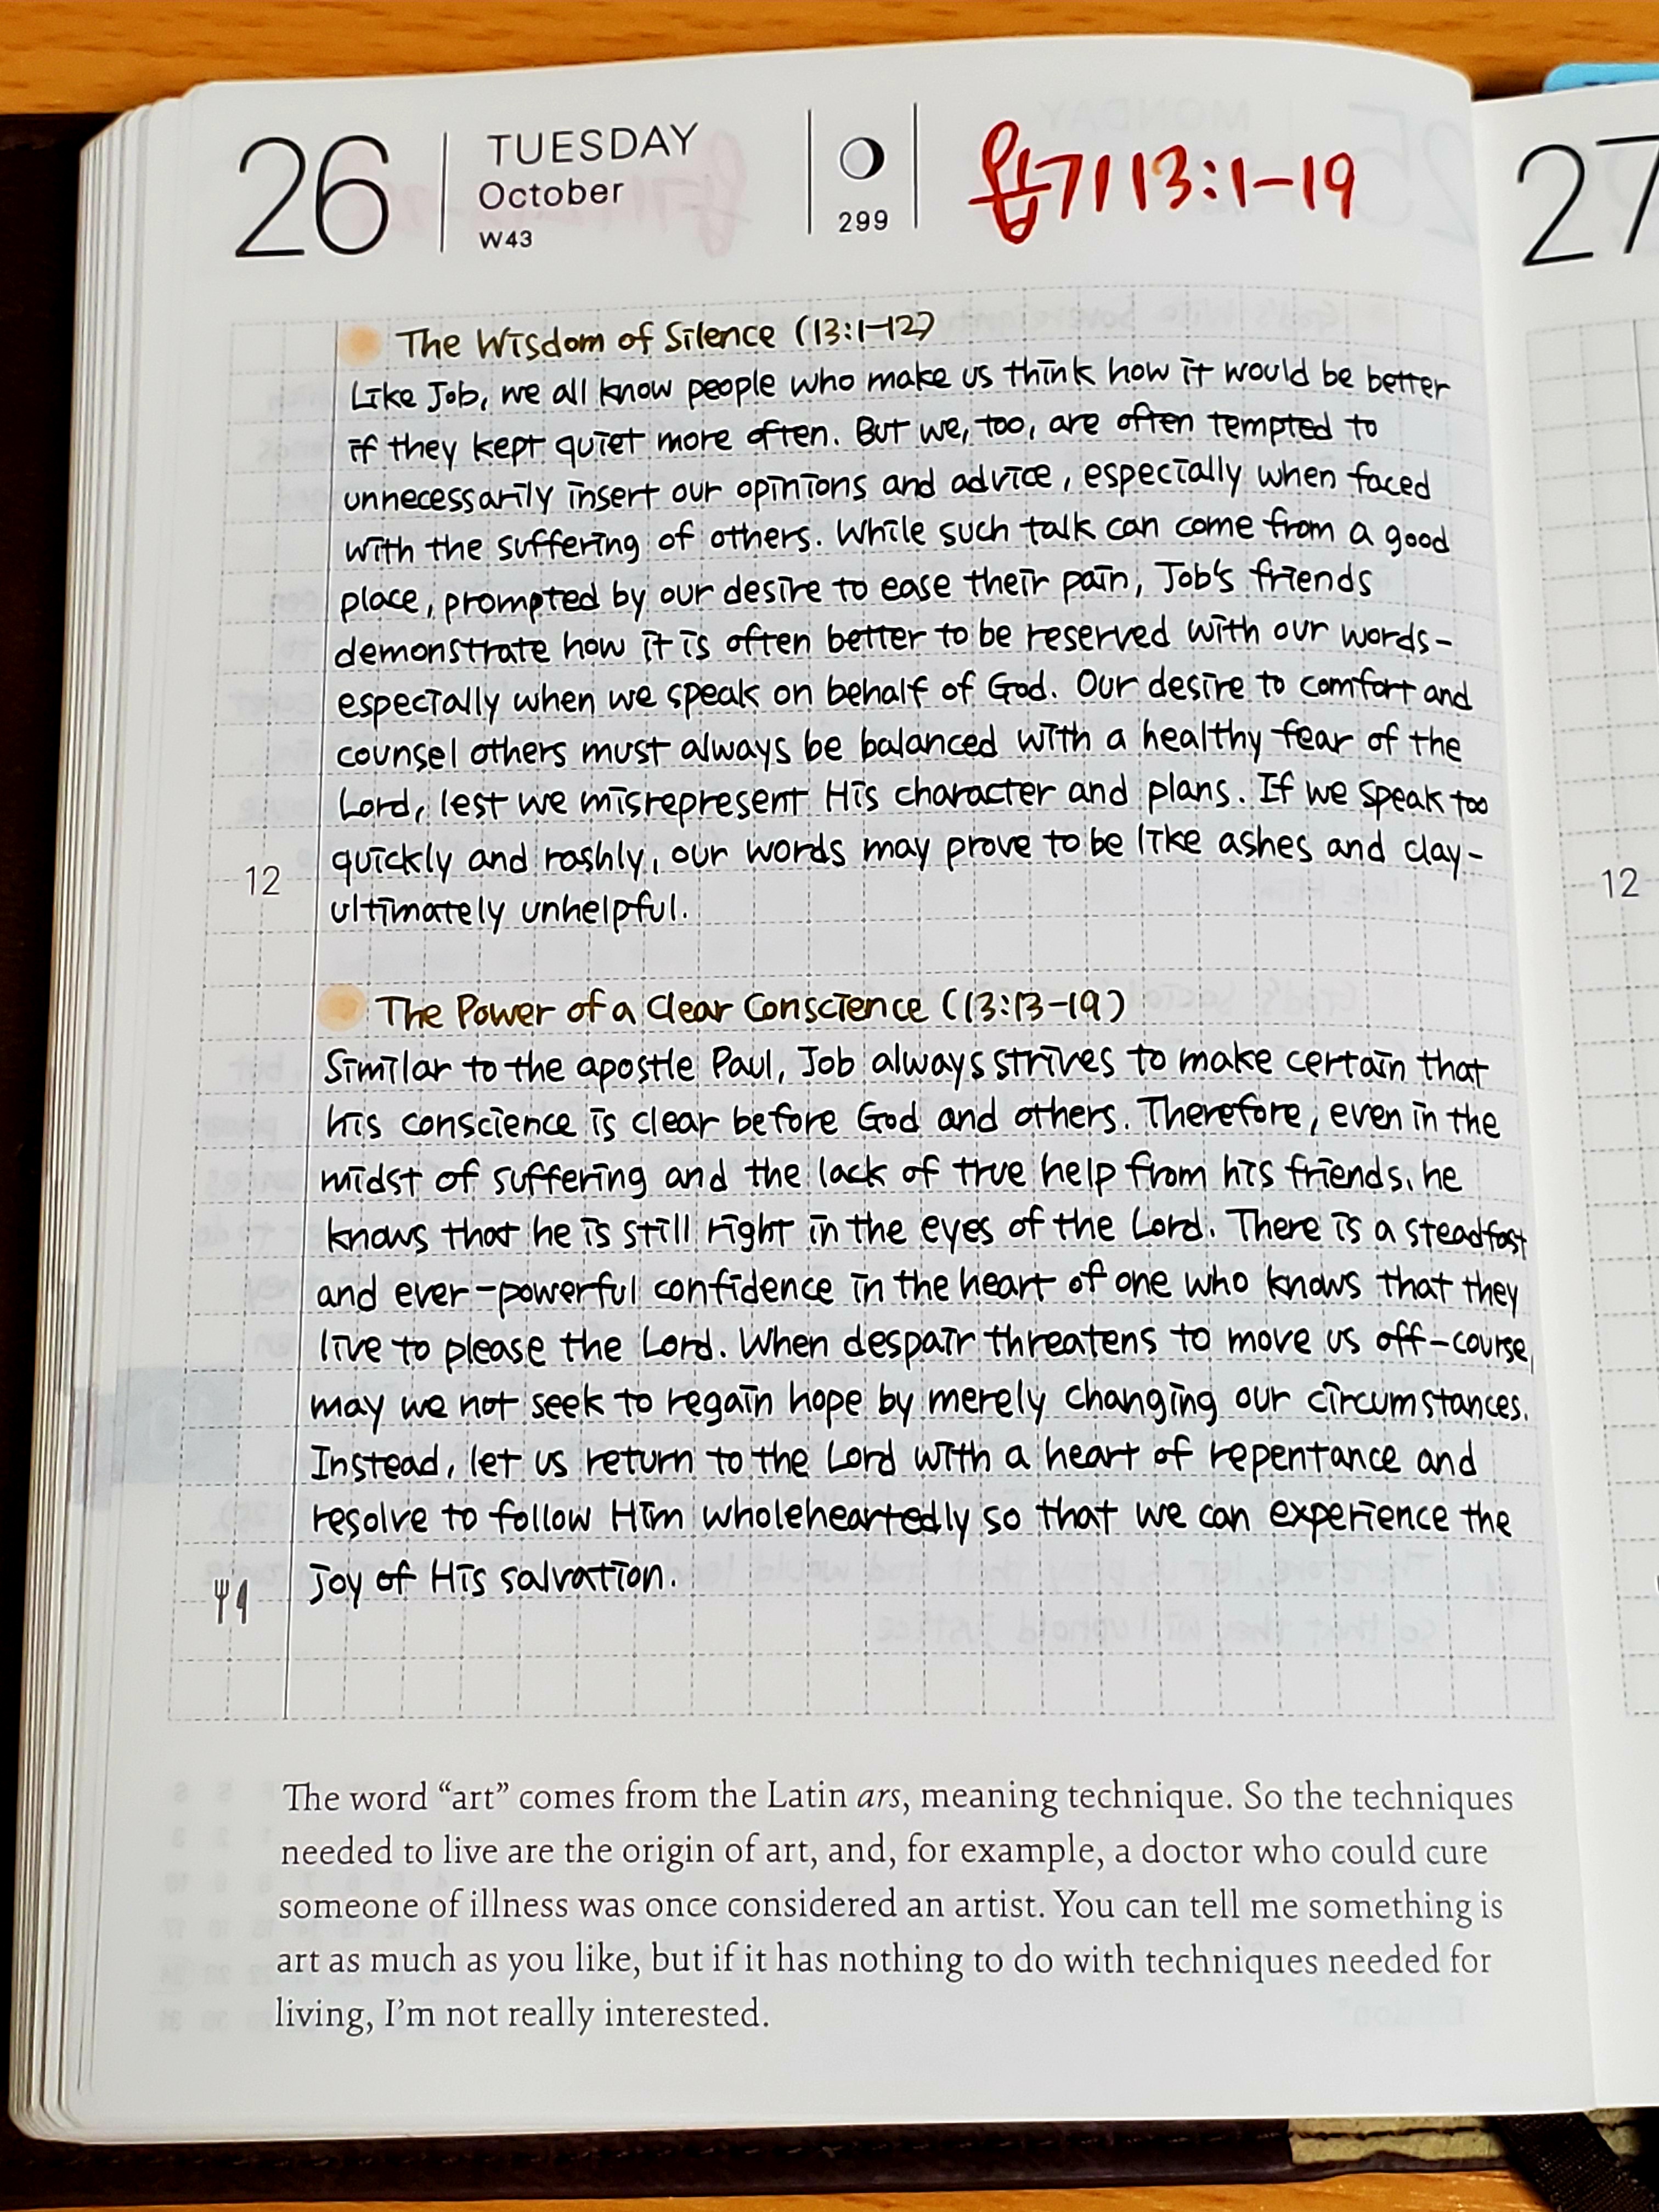 26
TUESDAY
October
W43
299
욥기 13:1-19
27
The Wisdom of Silence (13:1-12)
Like Job, we all know people who make us think how it would be better
if they kept quiet more often. But we, too, are often tempted to
unnecessarily insert our opinions and advice, especially when faced
with the suffering of others. While such talk can come from a good
place, prompted by our desire to ease their pain, Job's friends
demonstrate how it is often better to be reserved with our words-
especially when we speak on behalf of God. Our desire to comfort and
counsel others must always be balanced with a healthy fear of the
Lord, lest we misrepresent His character and plans. If we speak too
quickly and rashly, our words may prove to be like ashes and clay-
12
12
ultimately unhelpful.
The Power of a Clear Conscience (13:13-19)
Similar to the apostle Paul, Job always strives to make certain that
his conscience is clear before God and others. Therefore, even in the
midst of suffering and the lack of true help from his friends, he
knows that he is still right in the eyes of the Lord. There is a steadfast
and ever-powerful confidence in the heart of one who knows that they
live to please the Lord. When despair threatens to move us off-course,
may we not seek to regain hope by merely changing our circumstances.
Instead, let us return to the Lord with a heart of repentance and
resolve to follow Him wholeheartedly so that we can experience the
joy of His salvation.
The word “art” comes from the Latin ars, meaning technique. So the techniques
needed to live are the origin of art, and, for example, a doctor who could cure
someone of illness was once considered an artist. You can tell me something is
art as much as you like, but if it has nothing to do with techniques needed for
living, I’m not really interested.